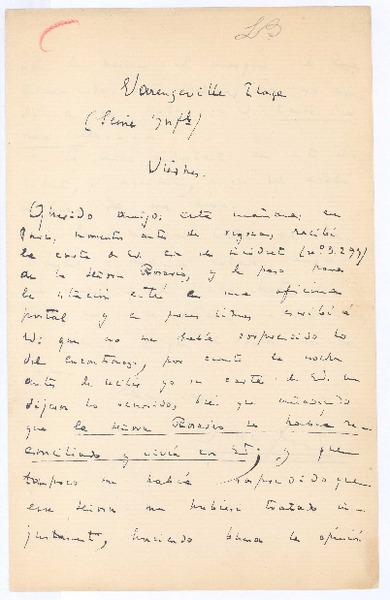 LB
Varengeville Plage
(Seine Inf<sup>re</sup>)
Viernes.
Querido amigo: esta mañana, en
Paris, momentos antes de regresar, recibí
la carta de Ud. en el (nº 3.299)
de la señora Rosario, y de paso para
la estación entré en una oficina
postal y a Ud. escribí á
Ud. que no me había sorprendido lo
del encontronazo, por cuanto la noche
antes de recibir yo su carta de Ud. me
dijeron lo sucedido, bien que añadiendo
que la señora Rosario se había re-
conciliado y vivía con Ud; y que
tampoco me había sorprendido que
esa señora me hubiese tratado in-
justamente, haciendo buena la opinión